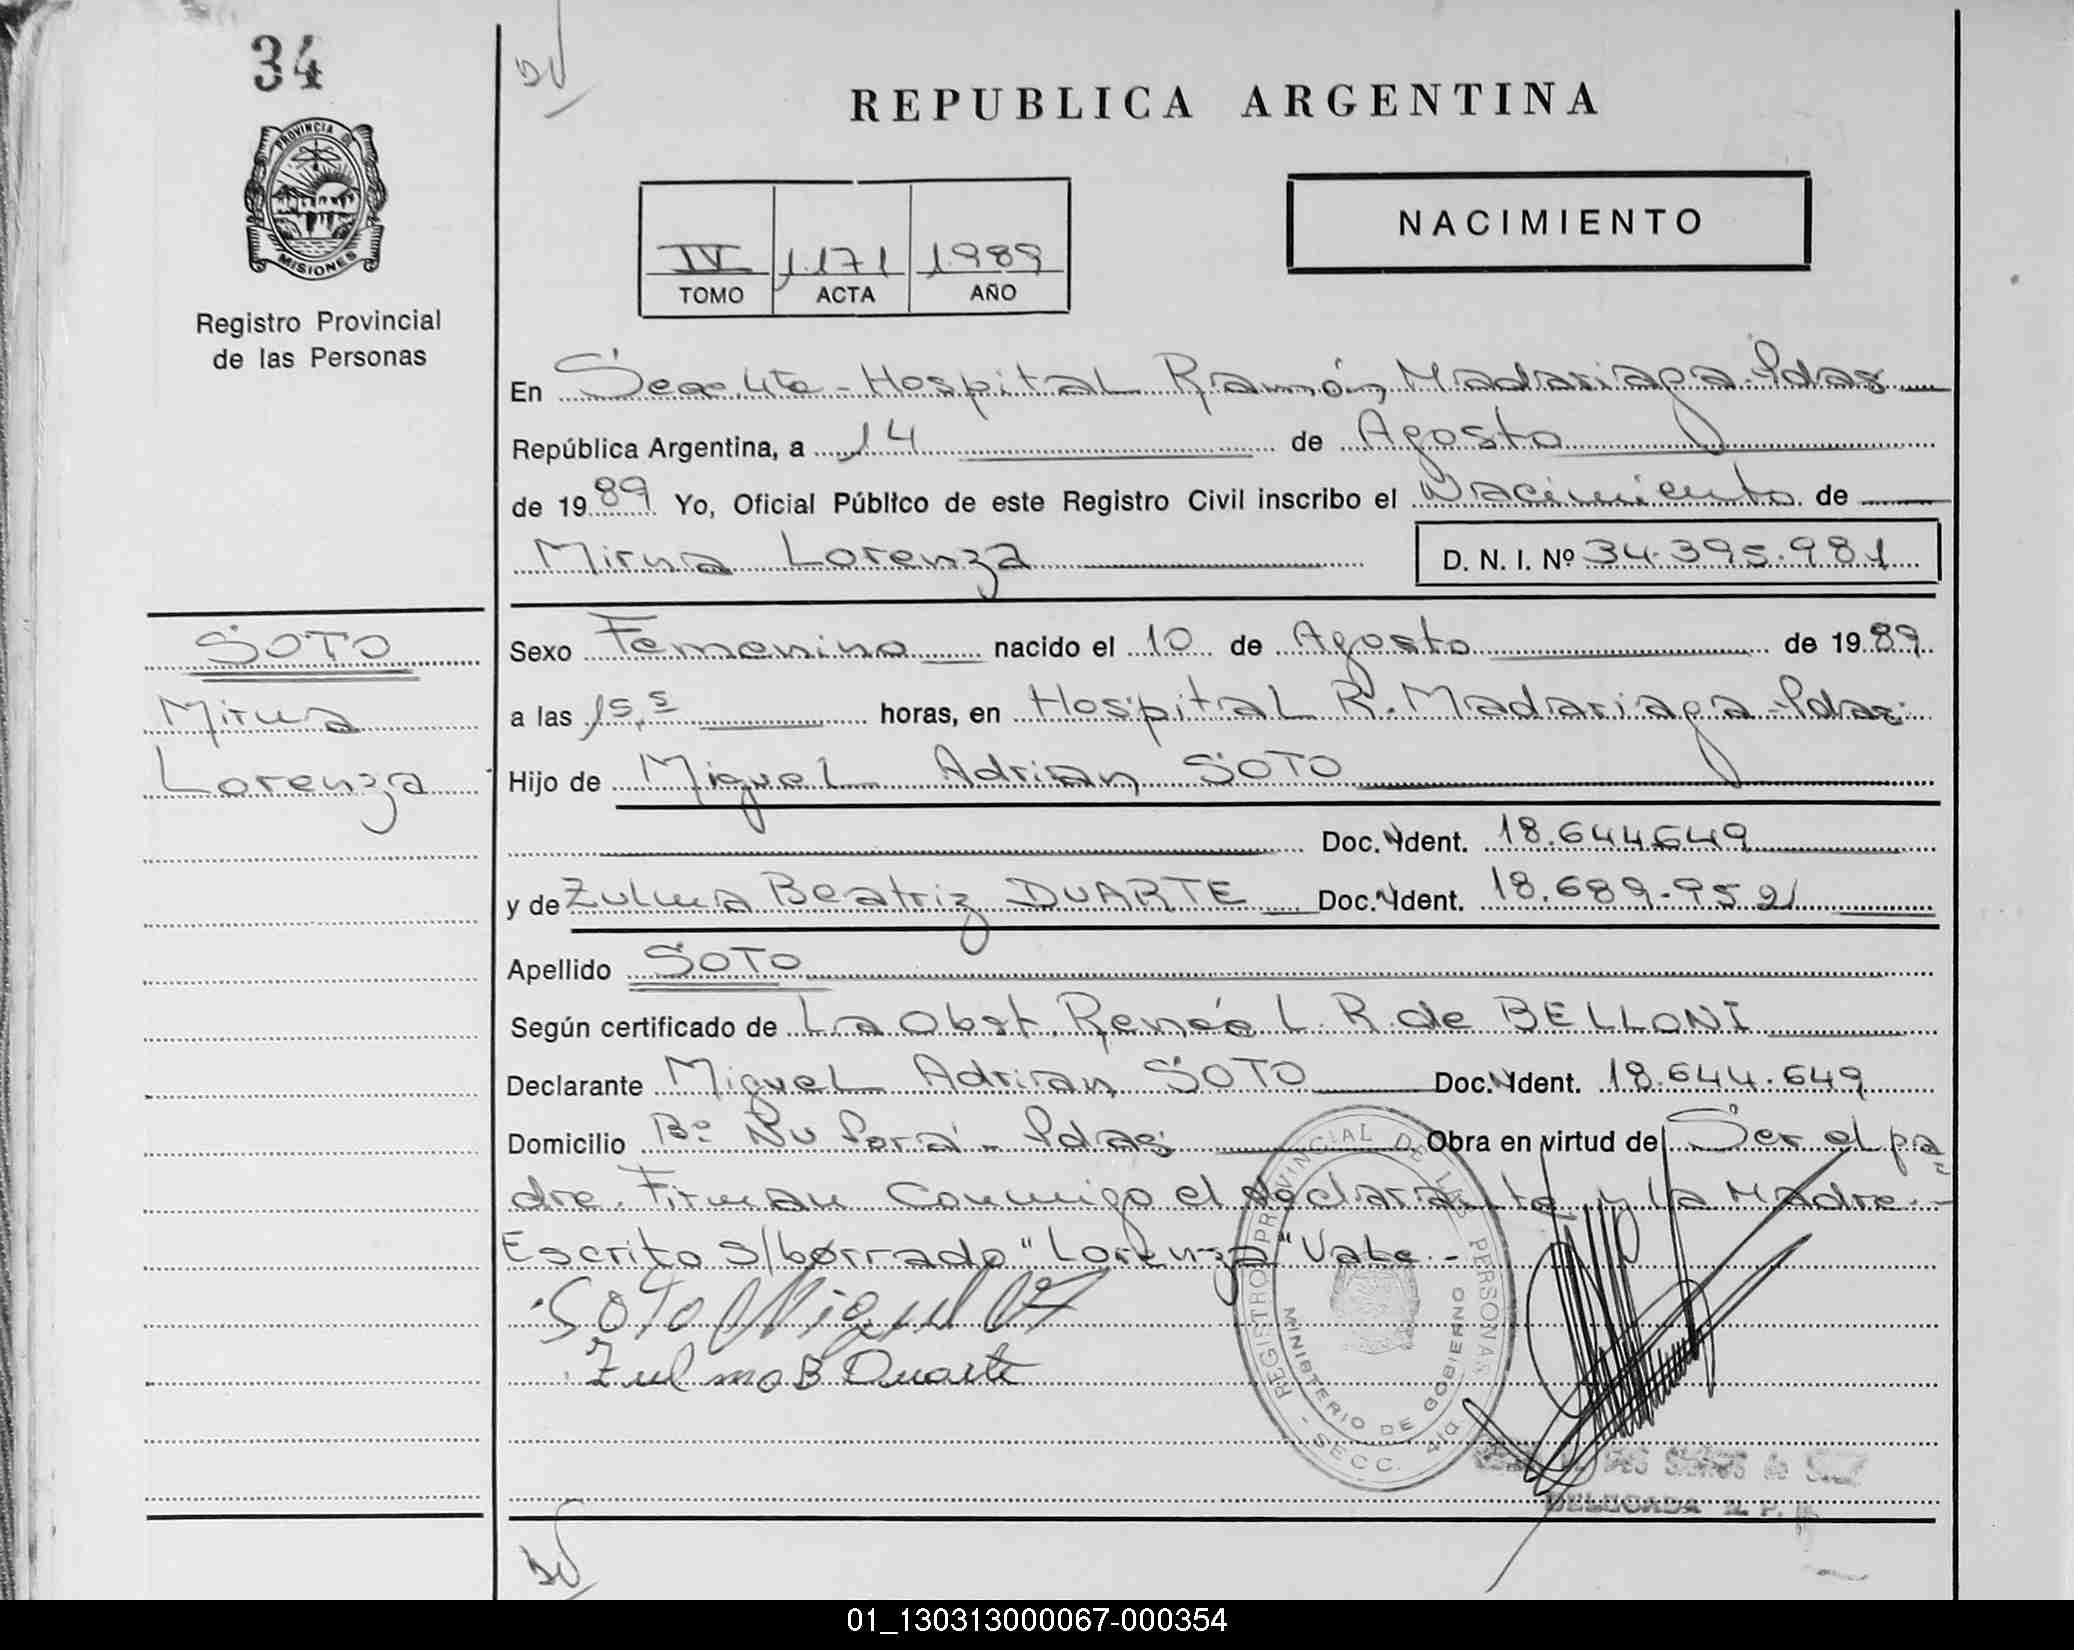 34
PROVINCIA DE
MISIONES
Registro Provincial
de las Personas
REPUBLICA ARGENTINA
NACIMIENTO
IV 1.171 1989
TOMO ACTA AÑO
En Secc. 4ta - Hospital Ramón Madariaga - Pdas
República Argentina, a 14 de Agosto
de 1989 Yo, Oficial Público de este Registro Civil inscribo el Nacimiento de
Mirna Lorenza D. N. I. Nº 34.395.981
SOTO
Mirna
Lorenza
Sexo Femenino nacido el 10 de Agosto de 1989
a las 15,5 horas, en Hospital R. Madariaga - Pdas
Hijo de Miguel Adrian SOTO
Doc. Ident. 18.644.649
y de Zulma Beatriz DUARTE Doc. Ident. 18.689.952
Apellido SOTO
Según certificado de La Obst. Renée L. R. de BELLONI
Declarante Miguel Adrian SOTO Doc. Ident. 18.644.649
Domicilio Bº Ñu Porá - Pdas Obra en virtud de Ser el pa
dre. Firman Conmigo el declarante y la Madre.-
Escrito s/borrado "Lorenza" Vale.-
Soto Miguel
Zulma B Duarte
REGISTRO PROVINCIAL DE LAS PERSONAS
MINISTERIO DE GOBIERNO
- SECC. 4ta
DELEGADA R. P.
01_130313000067-000354